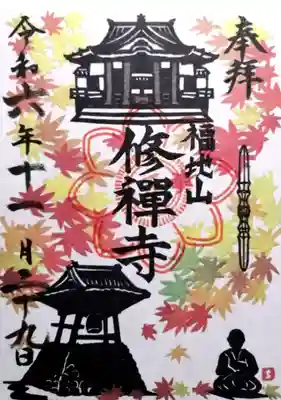 奉拝
福地山
修禅寺
令和六年十一月二十九日